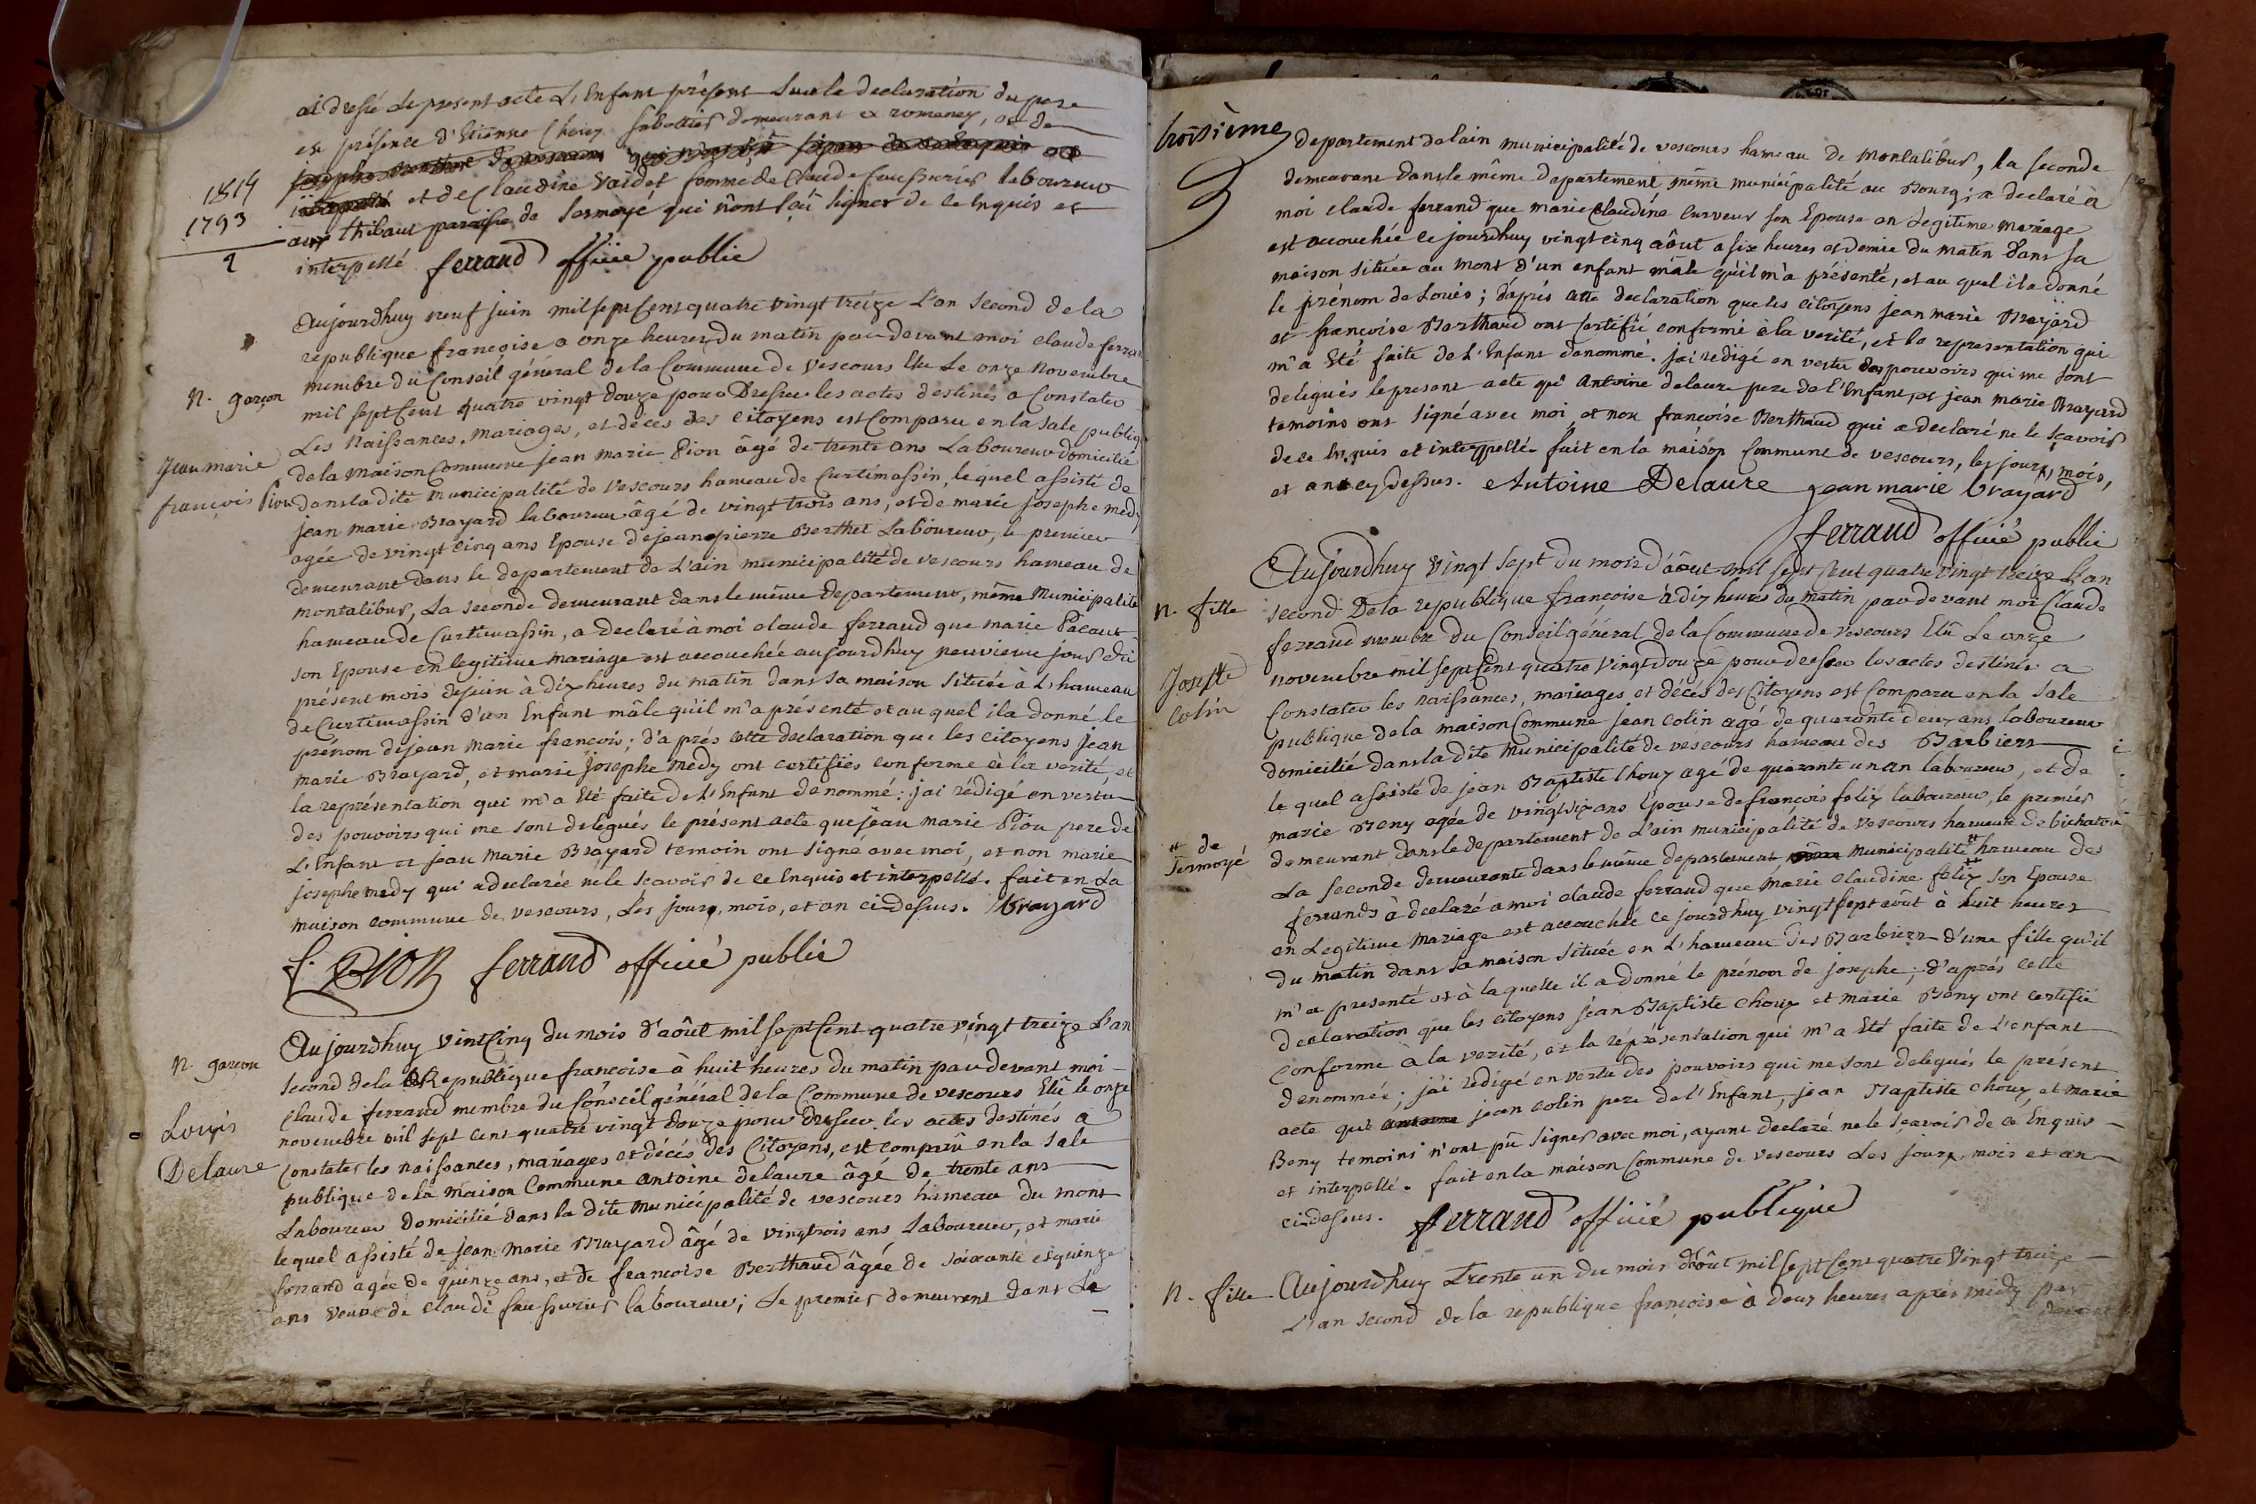 ai dressé le present acte L'Enfant présent Sur la declaration du pere
en présence d'Etienne Choux sabottier demeurant a romenay, et de
1814
et de Claudine Vaidet femme de Claude faussurier laboureur
1793
aux thibaut paroisse de sermoyé qui n'ont sçû signer de ce enquis et
interpellé ferrand officié public
Aujourdhuy neuf juin mil sept Cent quatre vingt treize L'an second de la
republique françoise a onze heures du matin par devant moi claude ferrand
membre du Conseil général de la Commune de Vescours Elu Le onze Novembre
N. garçon
mil sept Cent quatre vingt douze pour Dresser les actes destinés a Constater
Les Naissances, Mariages, et décès des Citoyens est Comparu en la Sale publiq
jean marie
de la maison Commune jean marie Pion âgé de trente ans Laboureur domicilié
françois Pion
dans la dite municipalité de Vescours hameau de Curtimassin, le quel assisté de
jean marie Brayard laboureur âgé de vingt trois ans, et de marie josephe medy
agée de vingt cinq ans Epouse de jean pierre Berthet Laboureur, le premier
demeurant dans le departement de L'ain municipalité de vescours hameau de
montalibur, La seconde demeurant dans le même departement, même Municipalité
hameau de Curtimassin, a declaré à moi claude ferrand que marie Pacaut
son Epouse en legitime mariage est accouchée aujourdhuy neuvieme jour du
présent mois de juin à dix heures du matin dans sa maison située à L'hameau
de Curtimassin d'un Enfant mâle qu'il m'a présenté et au quel il a donné le
prénom de jean marie françois; d'aprés cette declaration que les citoyens jean
marie Brayard, et marie josephe medy ont certifiés conforme à la verité, et
la représentation qui m'a Eté faite de L'Enfant denommé: j'ai rédigé en vertu
des pouvoirs qui me sont delegués le présent acte que jean marie Pion pere de
L'Enfant et jean marie Brayard temoin ont signé avec moi, et non marie
josephe medy qui a declarée ne le scavoir de ce Enquis et interpellé. fait en La
maison commune de vescours, les jour, mois, et an ci-dessus. Brayard
f. PION ferrand officié public
N. garçon
Aujourdhuy vint Cinq du mois d'aôut mil sept Cent quatre vingt treize L'an
second de la Republique francoise à huit heures du matin par devant moi
Louis
Claude ferrand membre du Conseil général de la Commune de vescours Elû le onze
novembre mil sept cent quatre vingt douze pour dresser les actes destinés a
Delaure
Constater les naissances, mariages et décès des Citoyens, est comparû en la sale
publique de la maison Commune antoine delaure âgé de trente ans
Laboureur domicilié dans la dite municipalité de vescours hameau du mont
le quel assisté de jean marie Brayard âgé de vingtrois ans Laboureur, et marie
ferrand agée de quinze ans, et de francoise Berthaud âgée de soixante et quinze
ans veuve de Claude faussurier laboureur; le premier demeurent dans Le
troisième
departement de lain municipalité de vescours hameau de montalibur, la seconde
demeurant dans le même departement même municipalité au Bourg; a declaré à
moi claude ferrand que marie Claudine Curveur son Epouse en legitime mariage
est accouchée ce jourdhuy vingt cinq aôut a six heures et demie du matin dans sa
maison située au mont d'un enfant mâle qu'il m'a présenté, et au quel il a donné
le prénom de Louis; d'aprés cette declaration que les citoyens jean marie Brayard
et françoise Berthaud ont certifié conforme à la verité, et la representation qui
m'a Eté faite de L'Enfant denommé. j'ai redigé en vertu des pouvoirs qui me sont
delegués le present acte que antoine delaure pere de l'Enfant, et jean marie Brayard
temoins ont signé avec moi et non françoise Berthaud qui a declaré ne le scavoir
de ce Enquis et interpellé. fait en la maison Commune de vescours, les jours, mois,
et an cy dessus. Antoine Delaure jean marie brayard
ferrand officié public
Aujourdhuy vingt sept du mois d'aôut mil sept Cent quatre vingt treize L'an
N. fille
second De la republique françoise à dix heures du matin par devant moi Claude
ferrand membre du Conseil général de la Commune de vescours Elû Le onze
Josephe
novembre mil sept Cent quatre vingt douze pour dresser les actes destinés a
Colin
Constater les naissances, mariages et décès des Citoyens est Comparu en la Sale
publique de la maison Commune jean Colin agé de quarante deux ans laboureur
domicilié dans la dite municipalité de vescours hameau des Barbiers
le quel assisté de jean Baptiste Choux agé de quarante un an laboureur, et de
marie Beny agée de vingt six ans Epouse de françois felix laboureur, le premier
# de
Sermoyé
demeurant dans le departement de L'ain municipalité de vescours hameau de
La seconde demeurante dans le même departement municipalité # hameau des
ferrands à declaré a moi claude ferrand que marie claudine felix son Epouse
en Legitime mariage est accouchée ce jourdhuy vingt sept aôut à huit heures
du matin dans sa maison située en L'hameau des Barbiers d'une fille qu'il
m'a presenté et à la quelle il a donné le prénom de josephe; d'aprés cette
declaration que les citoyens jean Baptiste choux et marie Beny ont certifié
conforme à la verité, et la représentation qui m'a Eté faite de L'enfant
denommée; j'ai redigé en vertu des pouvoirs qui me sont delegués le présent
acte que jean colin pere de l'Enfant, jean Baptiste choux, et marie
Beny temoins n'ont pû signer avec moi, ayant declaré ne le sçavoir de ce Enquis
et interpellé. fait en la maison Commune de vescours Les jour, mois et an
ci dessus. ferrand officié publique
N. fille
Aujourdhuy trente un du mois d'aôut mil sept Cent quatre vingt treize
L'an second de la republique françoise à deux heures aprés midy par
devant